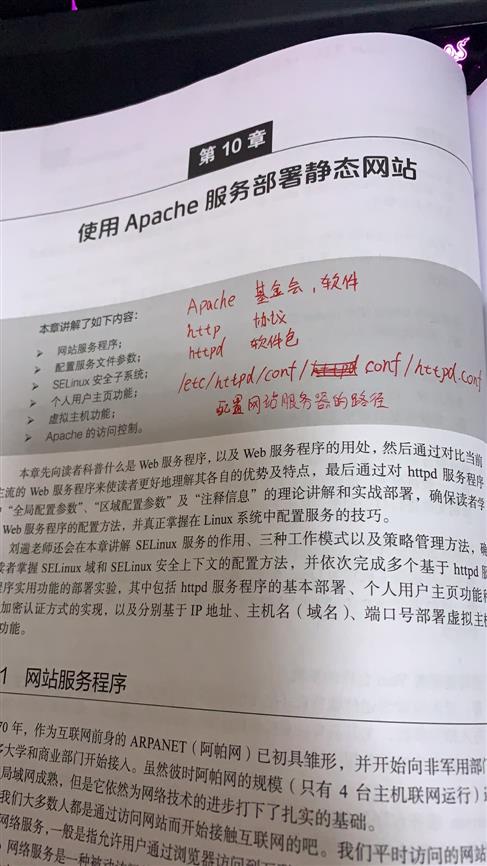 第 10 章
使用 Apache 服务部署静态网站
本章讲解了如下内容：
➢ 网站服务程序；
➢ 配置服务文件参数；
➢ SELinux 安全子系统；
➢ 个人用户主页功能；
➢ 虚拟主机功能；
➢ Apache 的访问控制。
Apache 基金会，软件
http 协议
httpd 软件包
/etc/httpd/conf/httpd conf/httpd.conf
配置网站服务器的路径
本章先向读者科普什么是 Web 服务程序，以及 Web 服务程序的用处，然后通过对比当前
主流的 Web 服务程序来使读者更好地理解其各自的优势及特点，最后通过对 httpd 服务程序
“全局配置参数”、“区域配置参数”及“注释信息”的理论讲解和实战部署，确保读者学
Web 服务程序的配置方法，并真正掌握在 Linux 系统中配置服务的技巧。
刘遄老师还会在本章讲解 SELinux 服务的作用、三种工作模式以及策略管理方法，确
读者掌握 SELinux 域和 SELinux 安全上下文的配置方法，并依次完成多个基于 httpd 服
程序实用功能的部署实验，其中包括 httpd 服务程序的基本部署、个人用户主页功能和
加密认证方式的实现，以及分别基于 IP 地址、主机名（域名）、端口号部署虚拟主机
功能。
1 网站服务程序
70 年，作为互联网前身的 ARPANET（阿帕网）已初具雏形，并开始向非军用部门
多大学和商业部门开始接入。虽然彼时阿帕网的规模（只有 4 台主机联网运行）
局域网成熟，但是它依然为网络技术的进步打下了扎实的基础。
我们大多数人都是通过访问网站而开始接触互联网的吧。我们平时访问的网站
网络服务，一般是指允许用户通过浏览器访问到
网络服务是一种被动